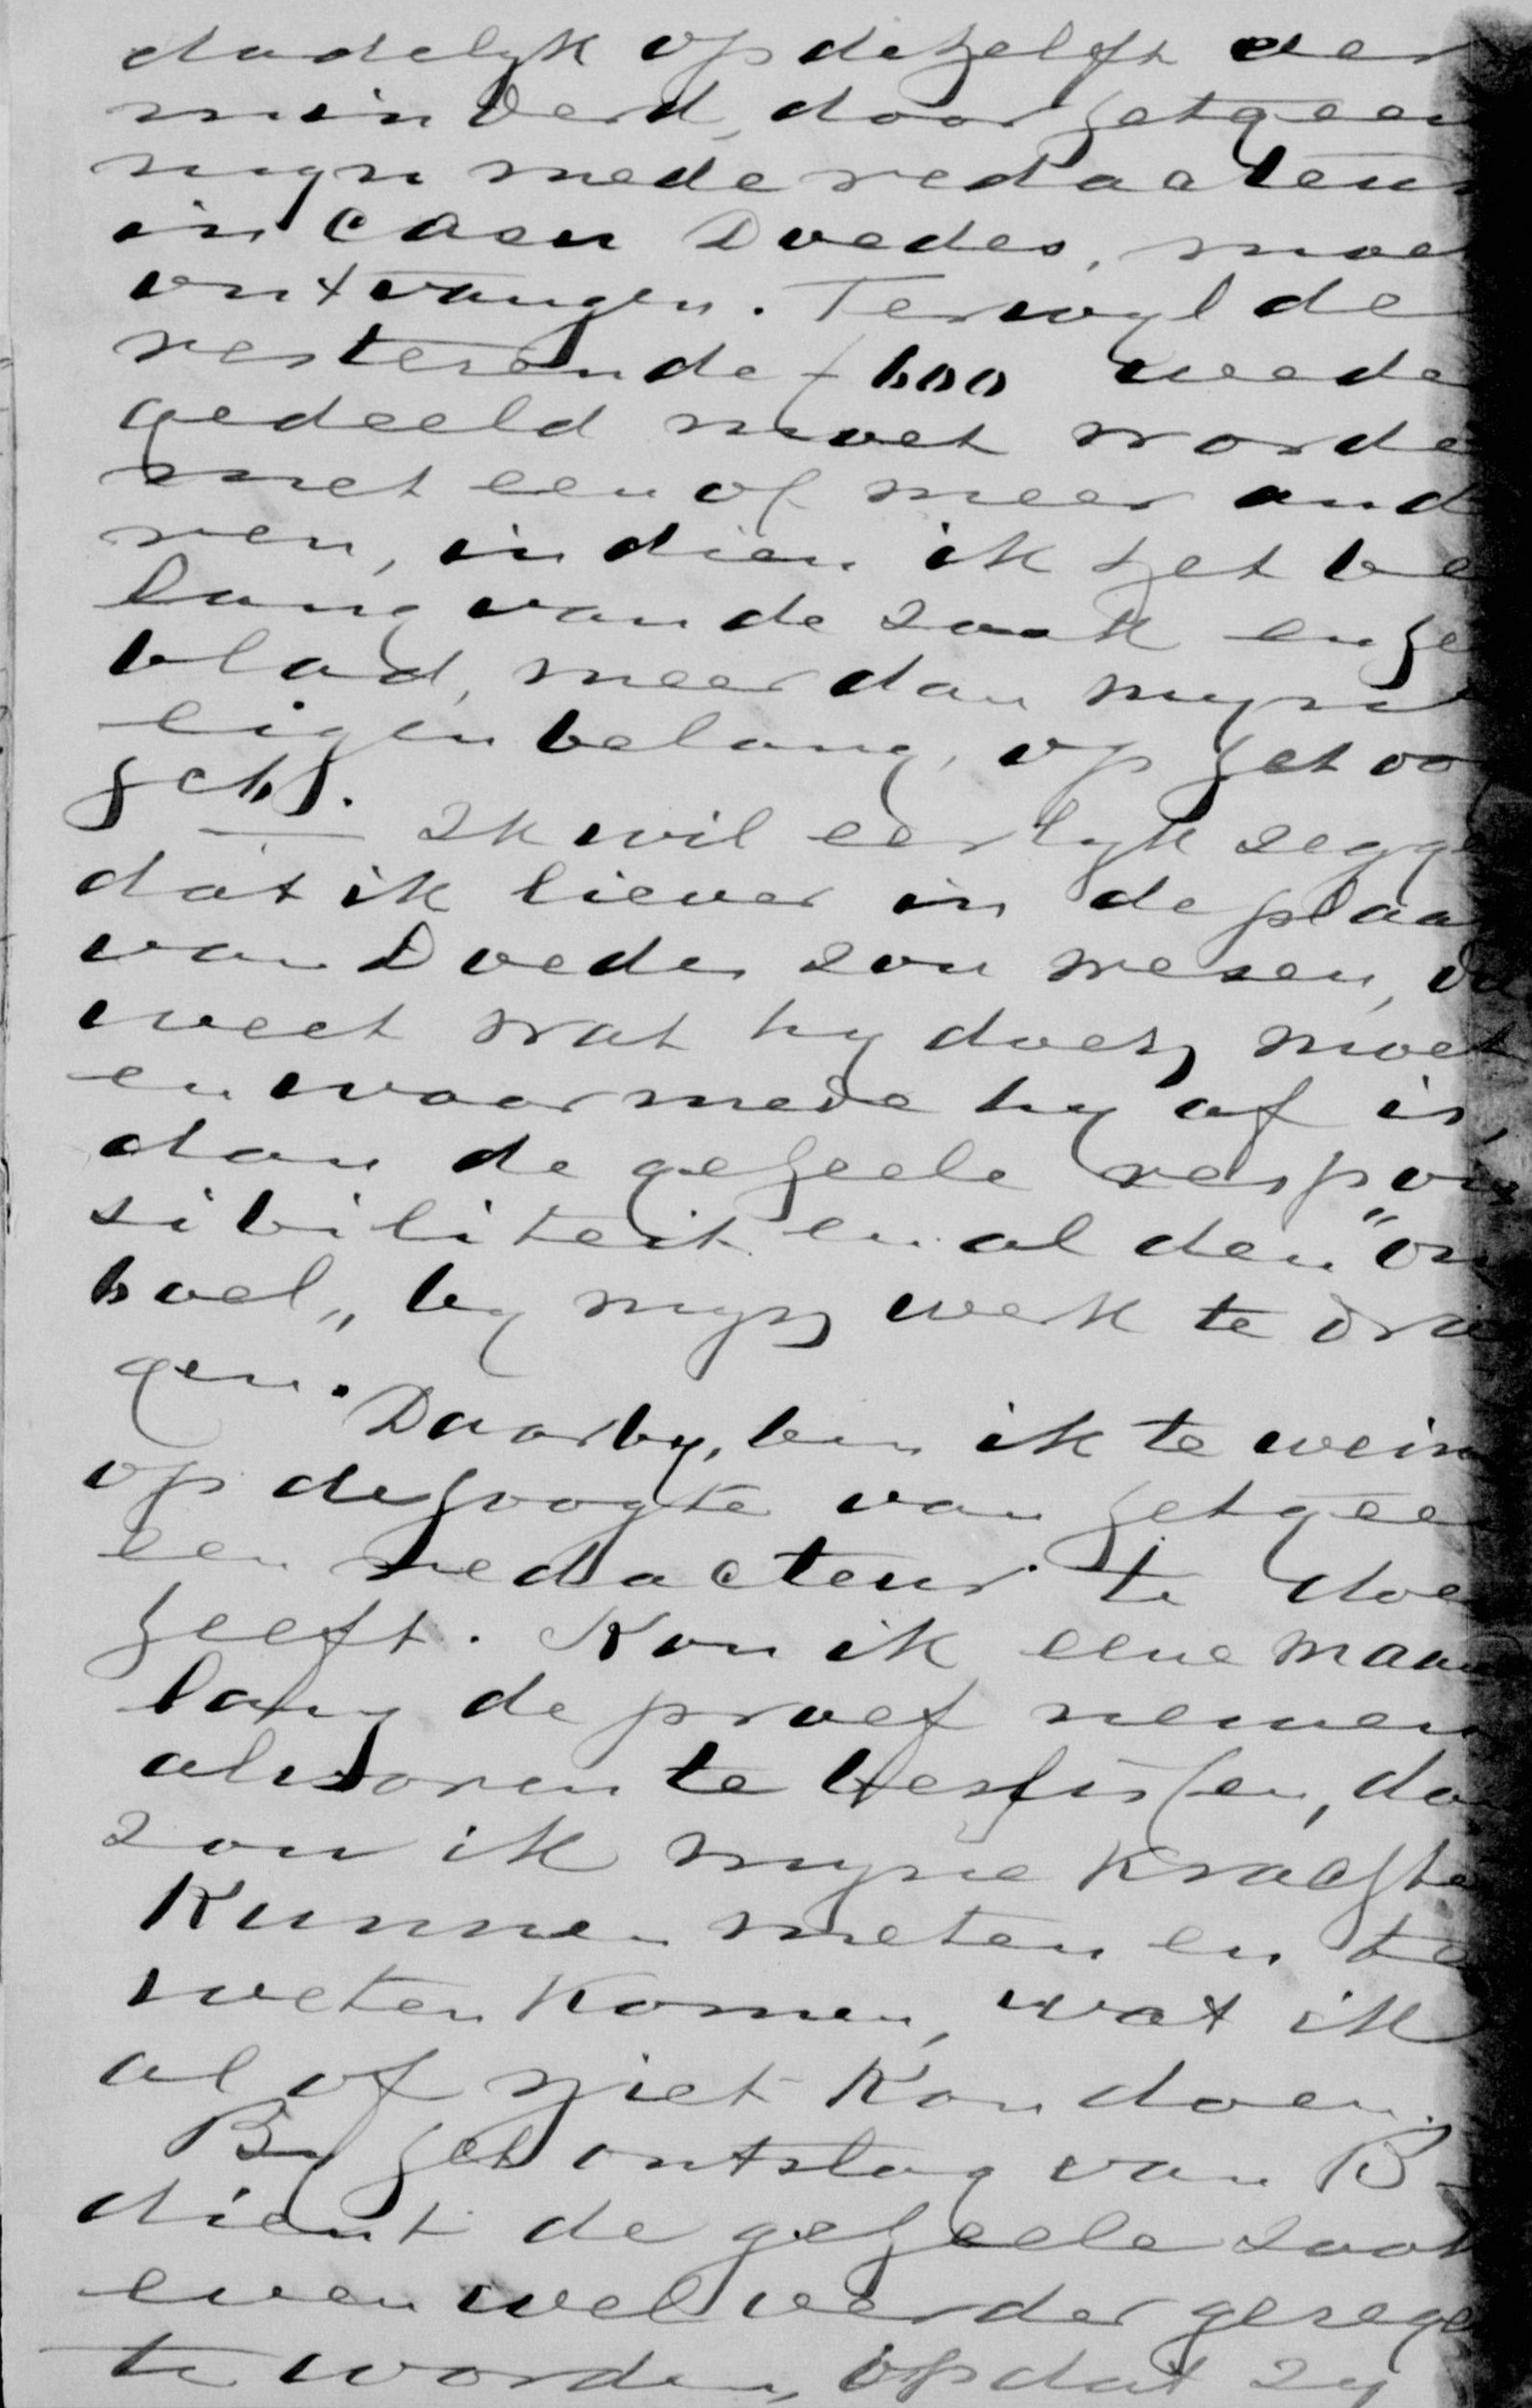 dadelyk op dezelfk ver
minderd, door hetgeen
mijn mede redacteur
in casu Doedes, moe
ontvangen. Terwyl de
resterende f 600 weede
gedeeld moet worde
met een of meer and
ren, indien ik het be
lang van de zaak en he
blad, meer dan myn
eigen belang, op het oo
heb.
— Ik wil eerlyk zegge
dat ik liever in de plaa
van Doedes zou wesen, di
weet wat hy doen moet
en waarmede hy af is,
dan de geheele respon
sibiliteit en al den "on
boel„ by myn werk te dra
gen.
Daarby, ben ik te wein
op de hoogte van hetgee
een redacteur te doe
heeft. Kon ik eene maan
lang de proef nemen
alvoren te beslissen, dan
zou ik myne krachte
kunnen meten en te
weten komen, wat ik
al of niet kon doen.
By het ontslag van B–
dient de geheele zaak
evenwel verder gerege
te worden, opdat zy